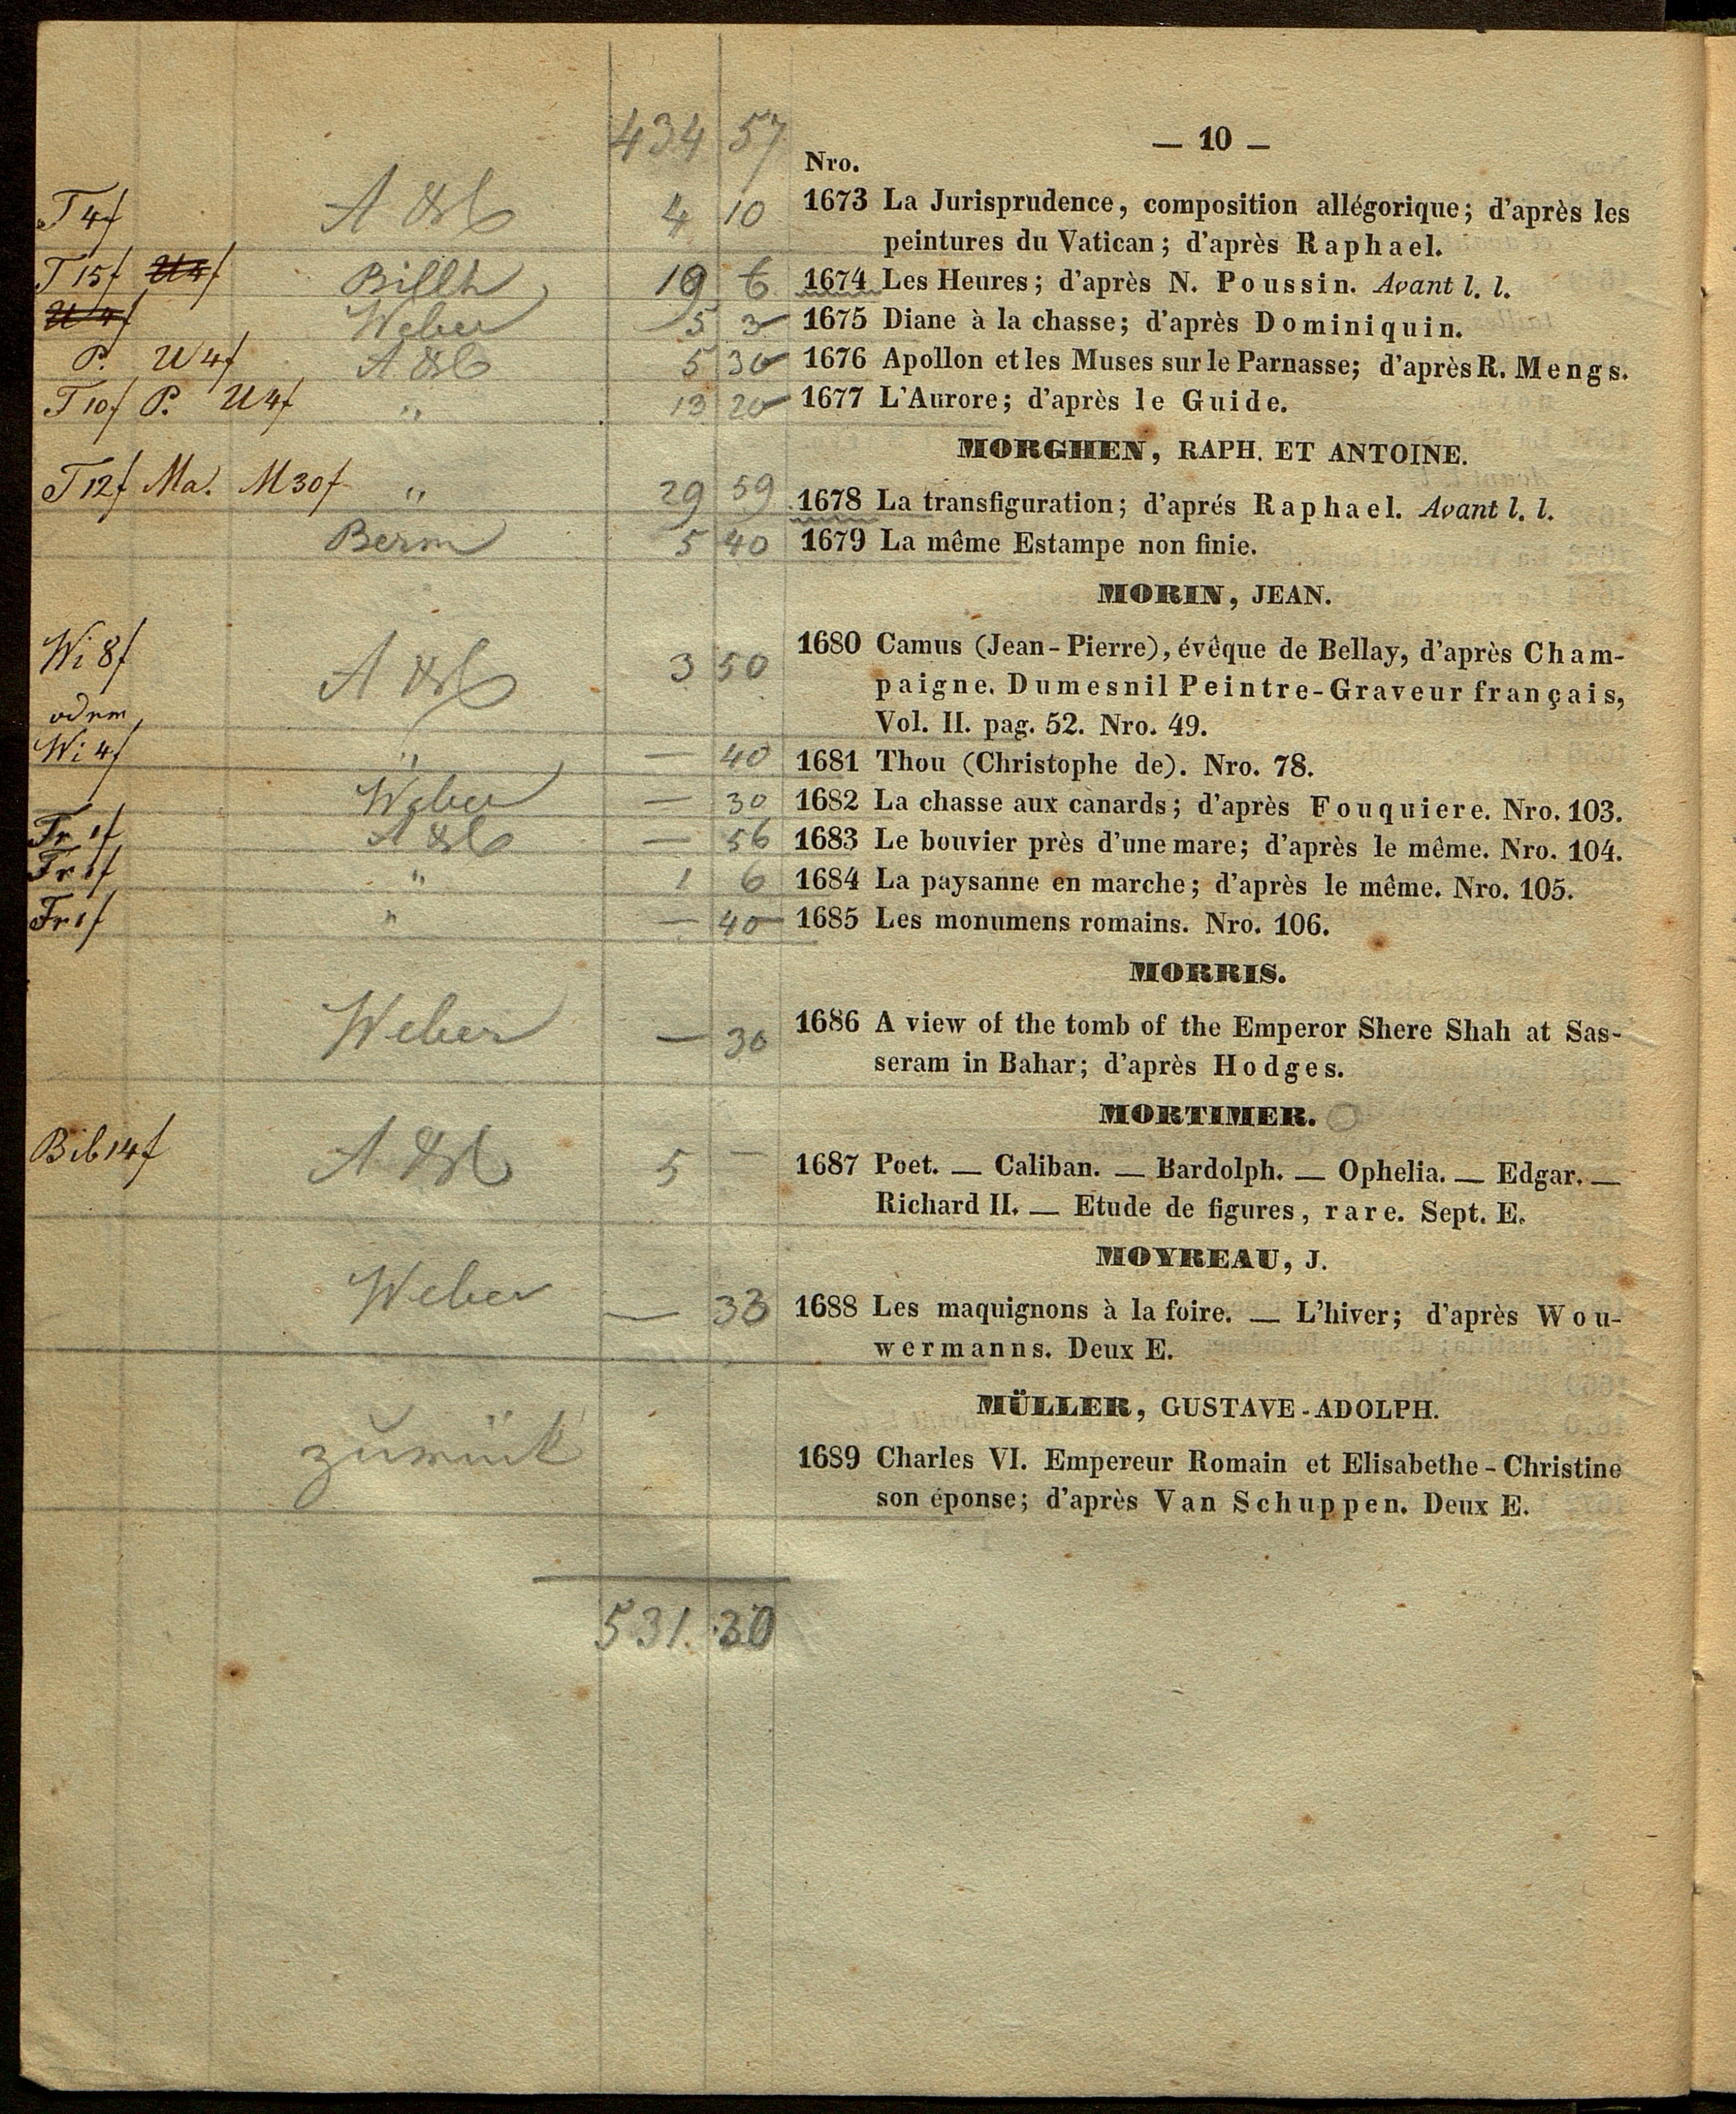 434 57
— 10 —
Nro.
T 4f 4 10 1673 La Jurisprudence, composition allégorique; d'après les
peintures du Vatican; d'après Raphael.
T 15f U4f 19 6 1674 Les Heures; d'après N. Poussin. Avant l. l.
U 4f Weber 5 3 1675 Diane à la chasse; d'après Dominiquin.
P. U 4f 5 30 1676 Apollon et les Muses sur le Parnasse; d'après R. Mengs.
T 10f P. U 4f " 13 20 1677 L'Aurore; d'après le Guide.
MORGHEN, RAPH. ET ANTOINE.
T 12f Ma. M 30f " 29 59 1678 La transfiguration; d'aprés Raphael. Avant l. l.
Berm 5 40 1679 La même Estampe non finie.
MORIN, JEAN.
Wi 8f 3 50 1680 Camus (Jean-Pierre), évêque de Bellay, d'après Cham-
paigne. Dumesnil Peintre-Graveur français,
Vol. II. pag. 52. Nro. 49.
Wi 4f " — 40 1681 Thou (Christophe de). Nro. 78.
Weber — 30 1682 La chasse aux canards; d'après Fouquiere. Nro. 103.
Fr 1f — 56 1683 Le bouvier près d'une mare; d'après le même. Nro. 104.
Fr 1f " 1 6 1684 La paysanne en marche; d'après le même. Nro. 105.
Fr 1f " — 40 1685 Les monumens romains. Nro. 106.
MORRIS.
Weber — 30 1686 A view of the tomb of the Emperor Shere Shah at Sas-
seram in Bahar; d'après Hodges.
MORTIMER.
Bib 14f 5 — 1687 Poet. — Caliban. — Bardolph. — Ophelia. — Edgar. —
Richard II. — Etude de figures, rare. Sept. E.
MOYREAU, J.
Weber — 33 1688 Les maquignons à la foire. — L'hiver; d'après Wou-
wermanns. Deux E.
MÜLLER, GUSTAVE-ADOLPH.
zurück 1689 Charles VI. Empereur Romain et Elisabethe-Christine
son éponse; d'après Van Schuppen. Deux E.
531.30